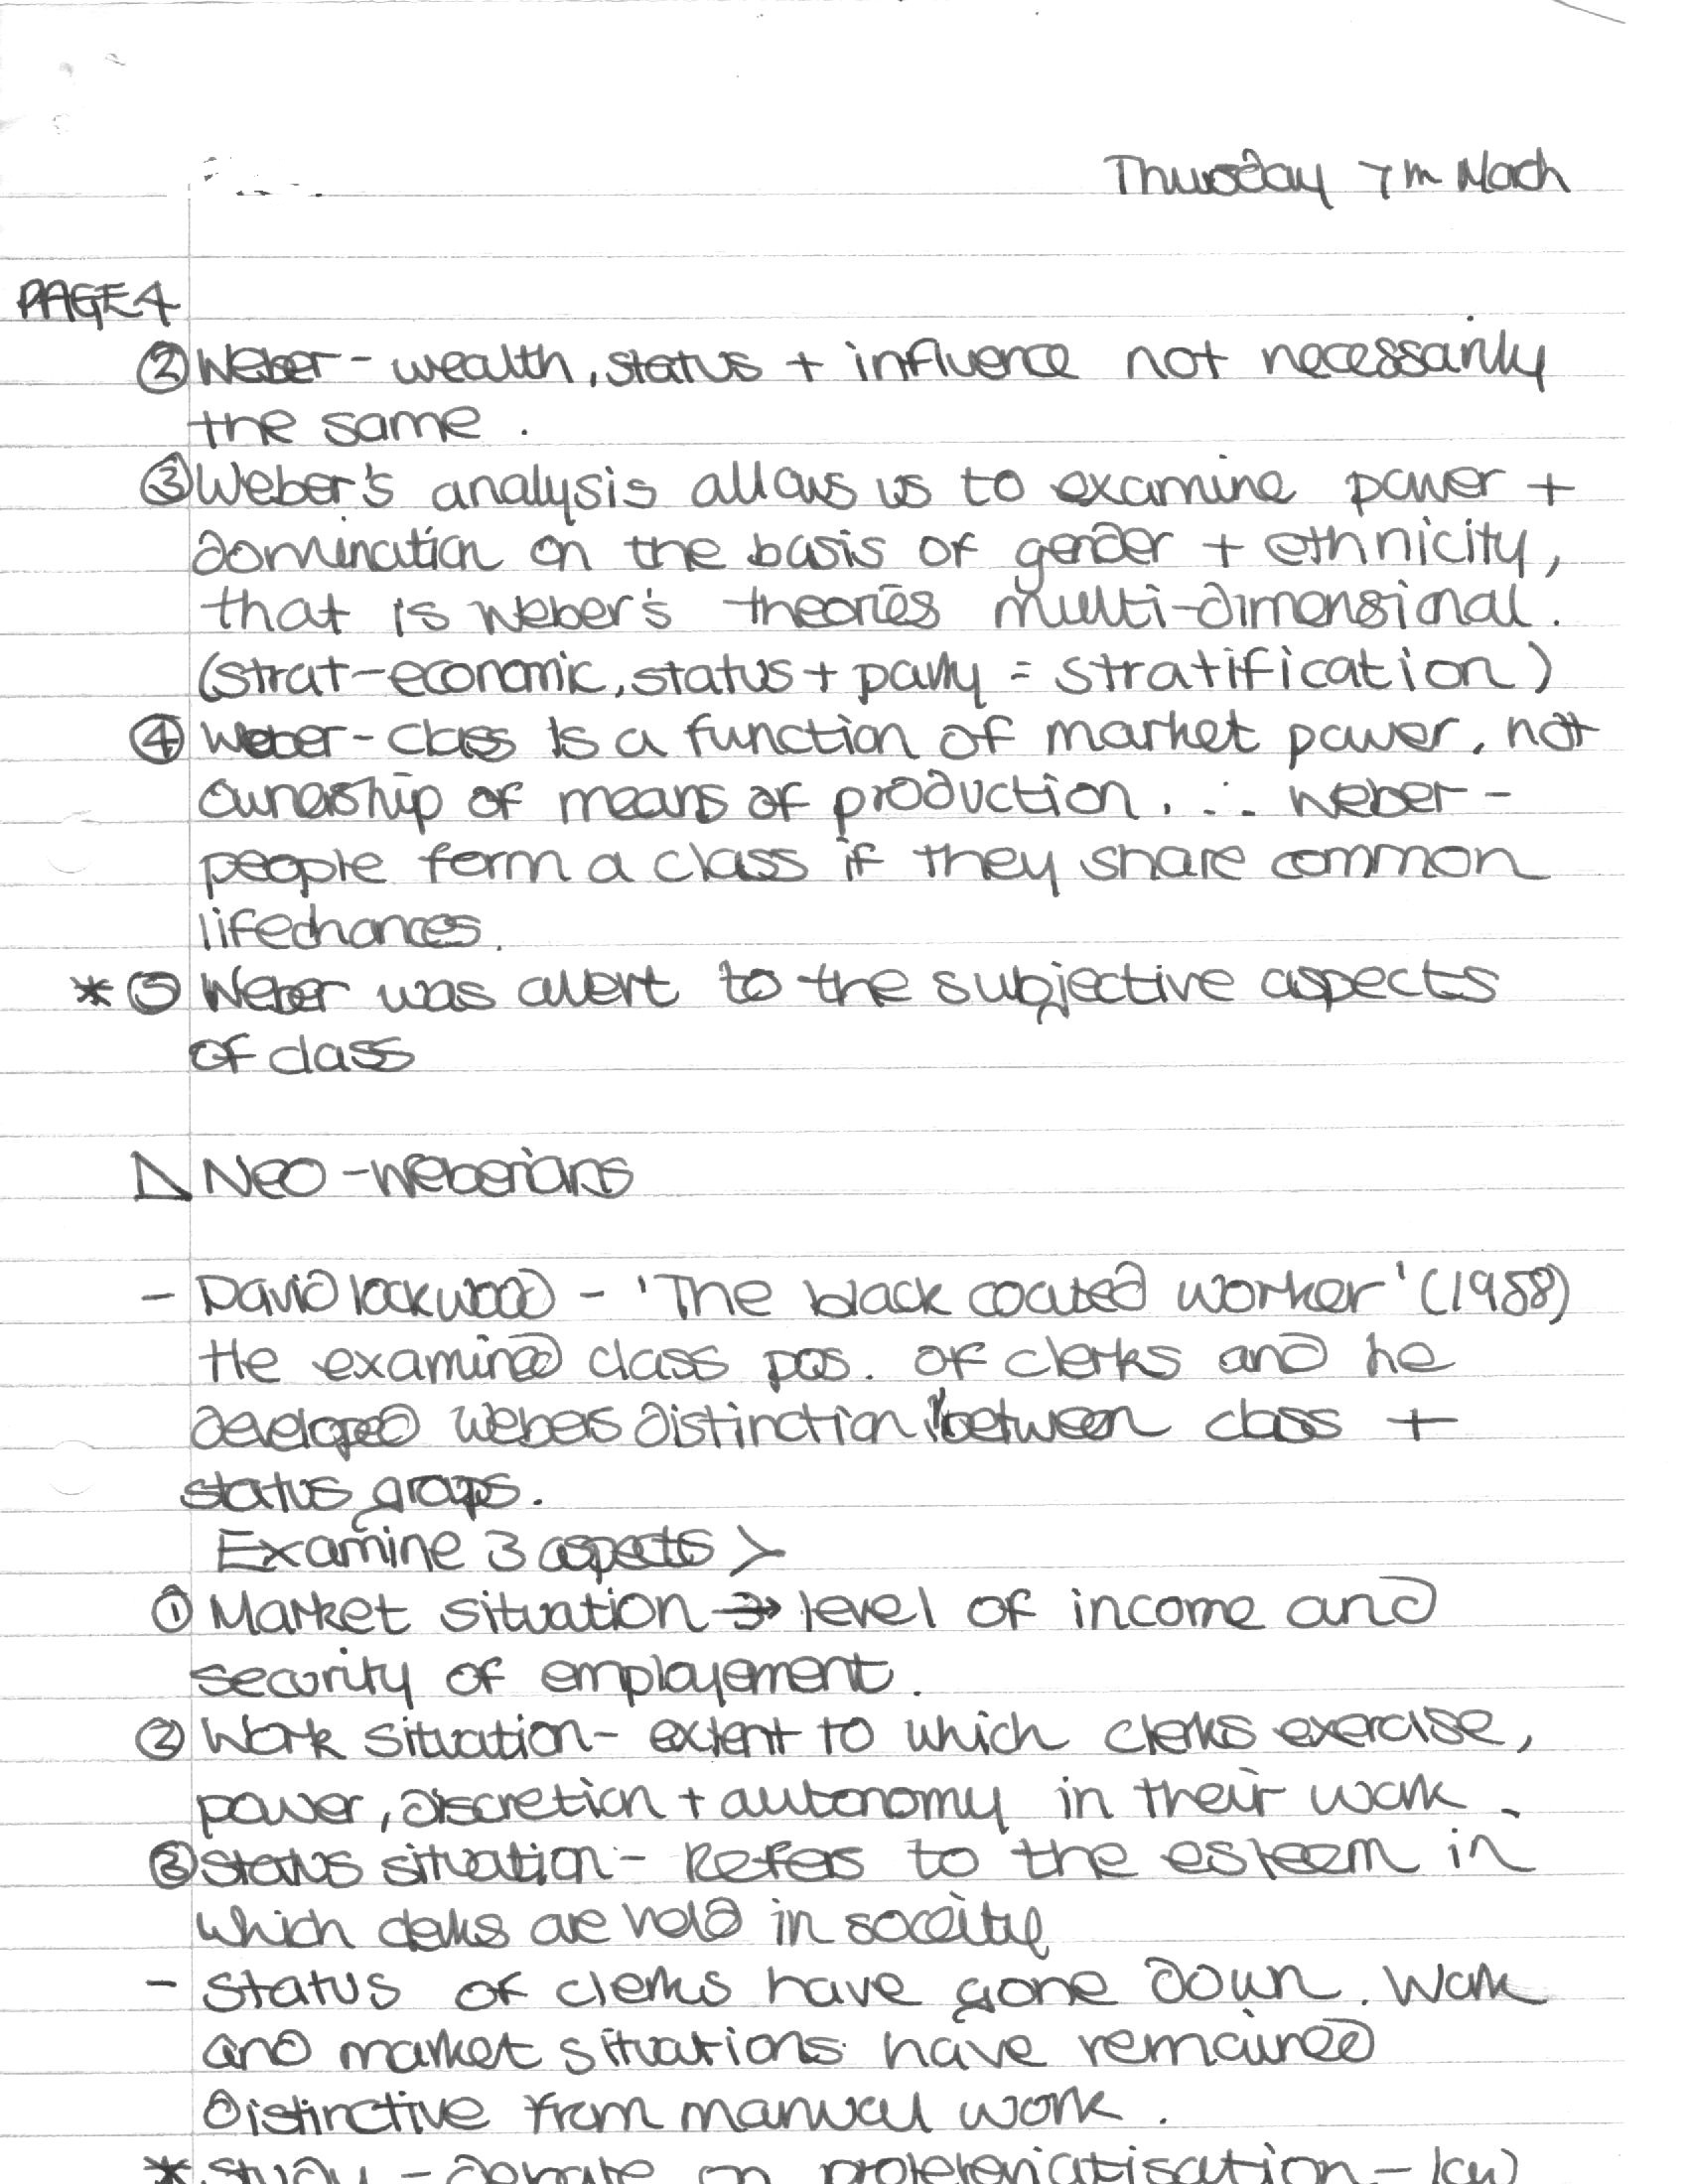 Thursday 7th March
PAGE 4
② Weber - wealth, status + influence not necessarily
the same.
③ Weber's analysis allows us to examine power +
domination on the basis of gender + ethnicity,
that is Weber's theories multi-dimensional.
(strat-economic, status + party = stratification)
④ Weber - class is a function of market power, not
ownership of means of production. ∴ Weber -
people form a class if they share common
lifechances.
* ⑤ Weber was alert to the subjective aspects
of class
Neo-Weberians
- David lockwood - 'The black coated worker' (1958)
He examined class pos. of clerks and he
developed Webers distinction between class +
status groups.
Examine 3 aspects >
① Market situation → level of income and
security of employement.
② Work situation - extent to which clerks exercise,
power, discretion + autonomy in their work.
③ Status situation - Refers to the esteem in
which clerks are held in soceity
- Status of clerks have gone down. Work
and market situations have remained
distinctive from manual work.
* Study - debate on proleteriatisation -